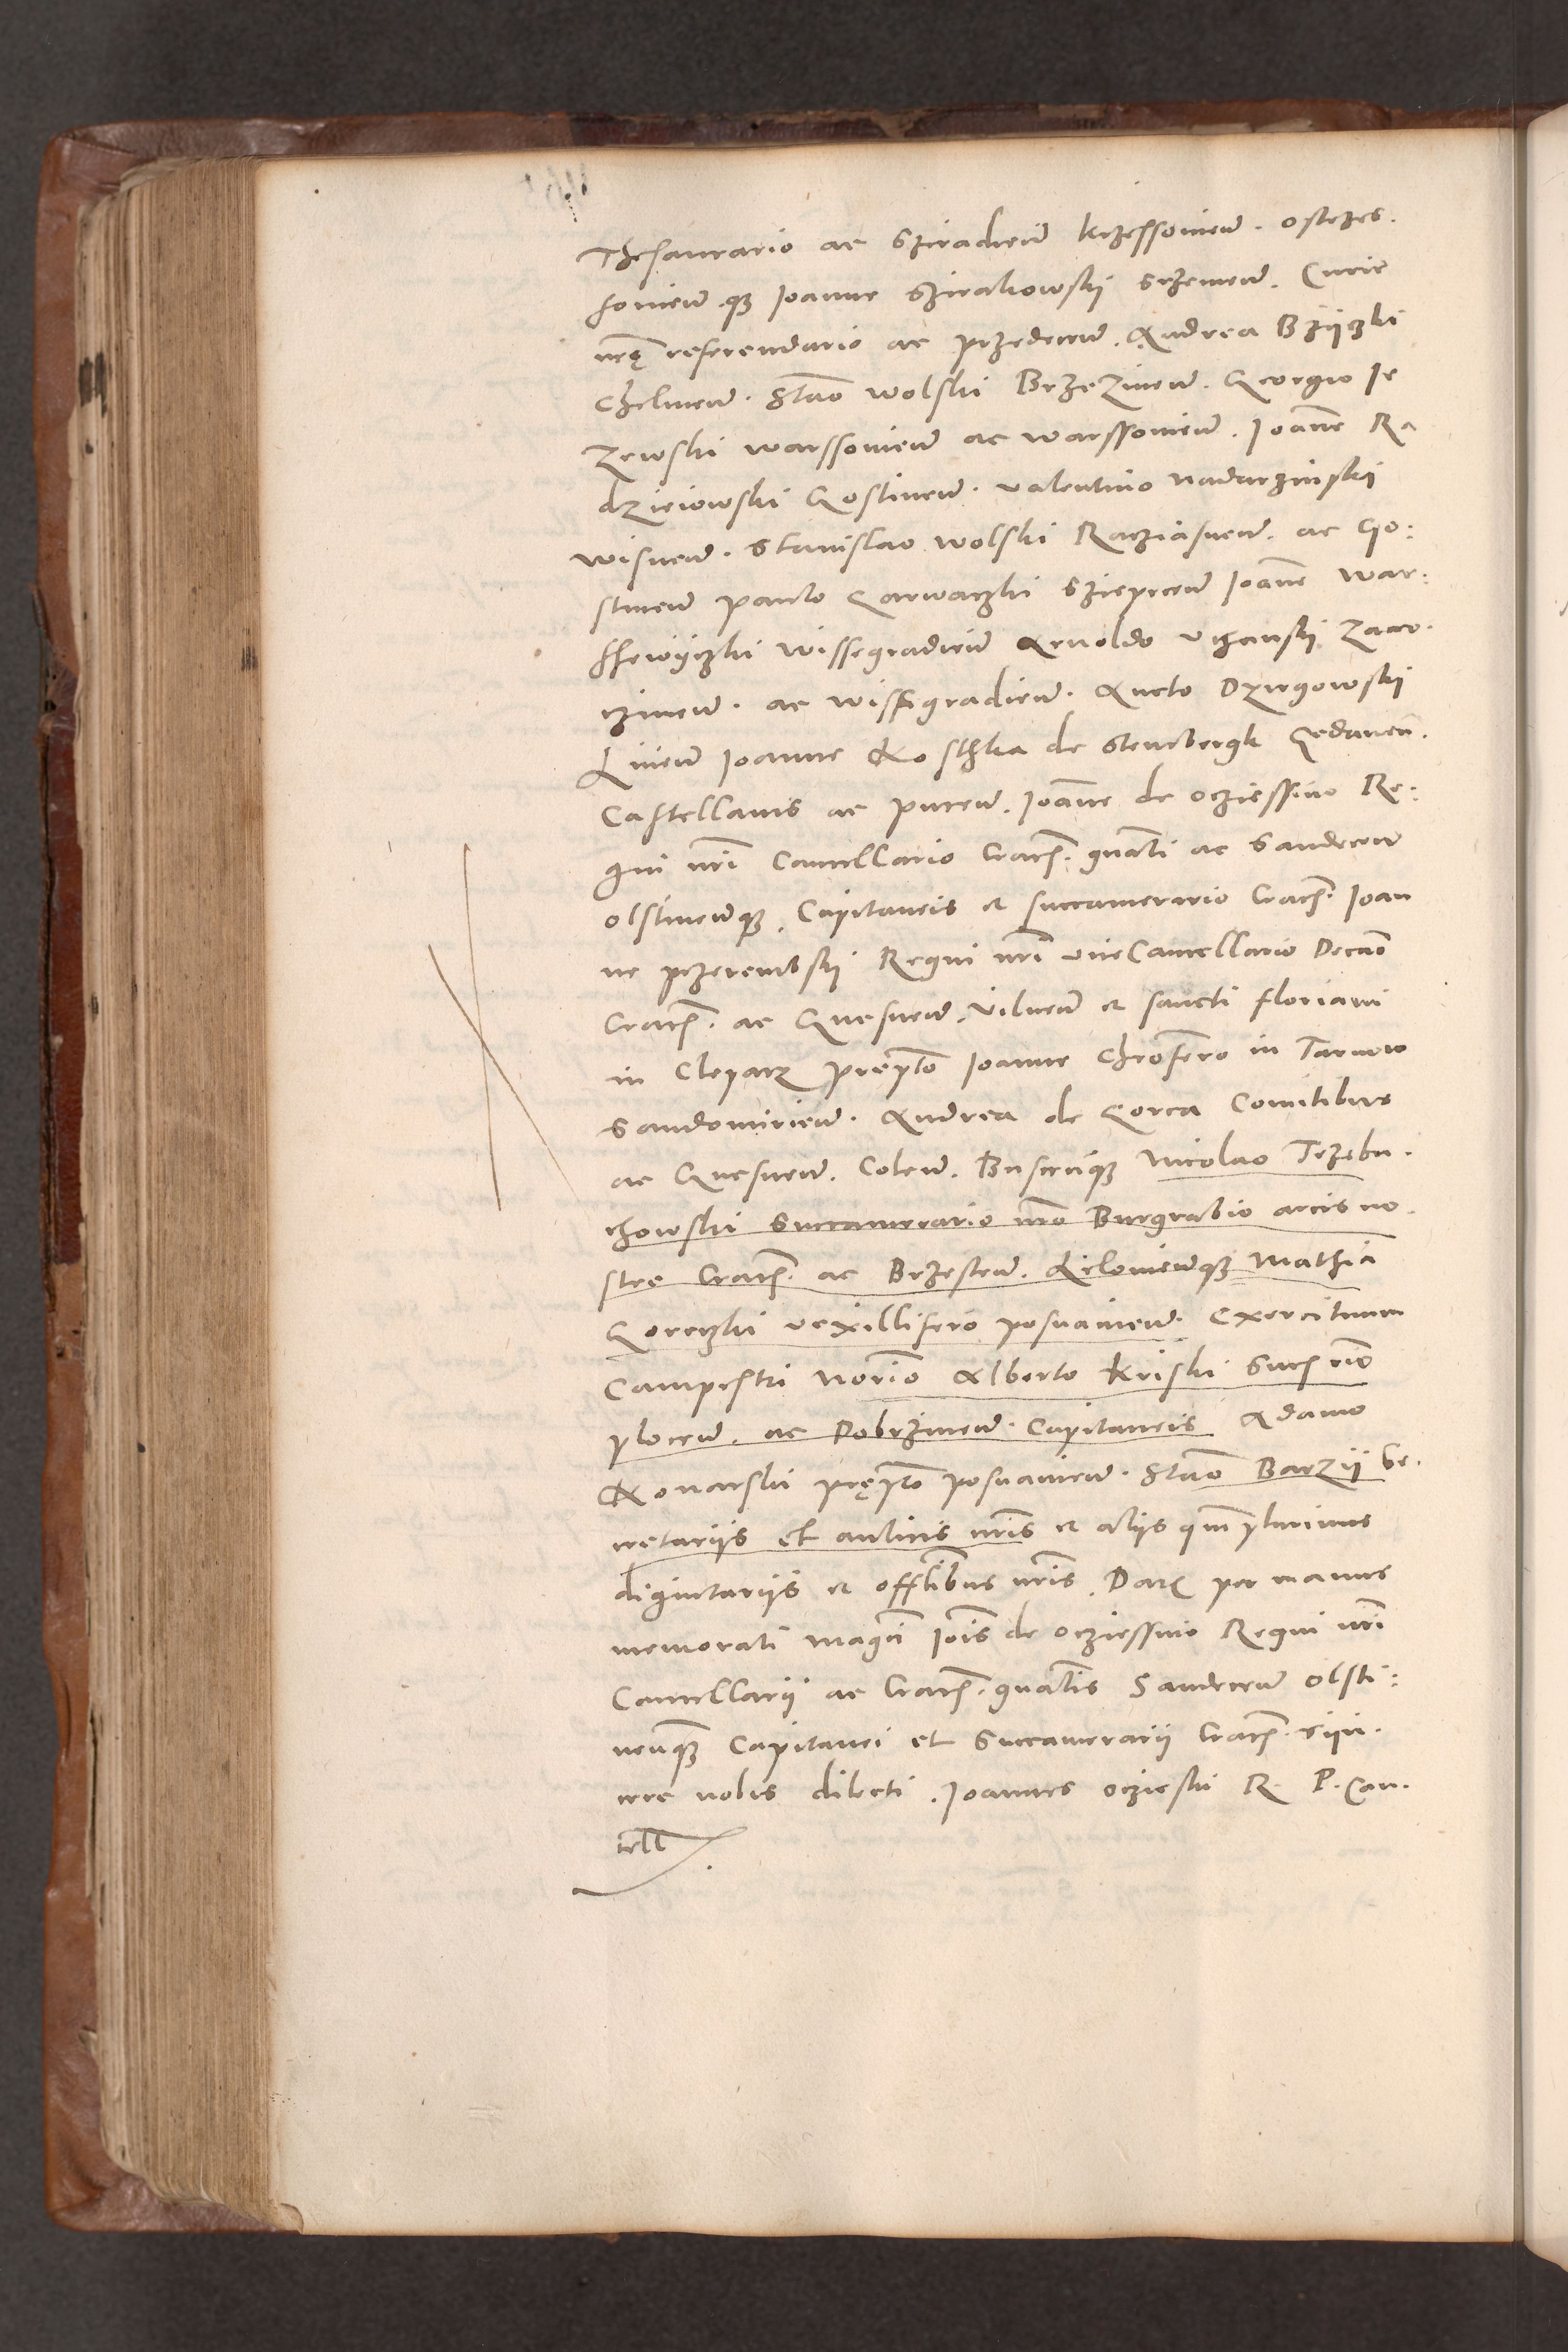 Thesaurario ac Sziradien̄ krzessouien̄. Ostrzes.
souien̄.qȝ Ioanne Szierakowskij Srzemen̄. Curie
nr̄ę referendario ac przedecen̄. Andrea Bziiczki
Chelmen̄. Stāo Wolski Brzezinen̄. Georgio Ie
zewski warssouien̄ ac warssouien̄. Ioan̄e Ra
dzieiowski Gostinen̄. Valentino Nadarzinskij
wisnen̄. Stanislao Wolski Racziasnen̄. ac Go:
stinen̄ Paulo Garwaczki Sziepicen̄ Ioan̄e War:
ssewiyczki Wissegradien̄ Arnoldo Vchanskij Zacro.
czimen̄. ac wissegradien̄. Aucto Dzirgowskij
Liuen̄ Ioanne Kosthka de Stembergk Gedanen̄.
Castellanis ac Pucen̄. Ioan̄e de Ocziessino Re:
gni nr̄i Cancellario Cracȝ. gn̄ali ac Sandecen̄
olstinen̄qȝ. Capitaneis et succamerario Cracȝ. Ioan
ne przerembskij Regni nr̄i viceCancellario Decāo
Cracȝ. ac Gnesnen̄. Vilnen̄ et sancti floriani
in Cleparz prep̄to Ioanne Chrōfero in Tarnow
Sandomirien̄. Andrea de Gorca Comitibus
ac Gnesnen̄. Colen̄. Buscen̄qȝ Nicolao Trzebu.
chowski Succamerario nr̄o Burgrabio arcis no.
stre Cracȝ. ac Brzesten̄. Kilouien̄qȝ Mathia
Goreczki vexillifero posnanien̄. Exercituum
Campestri No̅rio Alberto Kriski Succȝrio
plocen̄. ac Dobrzinen̄. Capitaneis Adamo
Konarski pręp̄to posnanien̄. Stāo Barzij Se.
cretariis et aulicis nr̄is et aliis qm̄plurimis
dignitariis et offl̄ibus nr̄is. Datȝ per manus
memorati Mag̅ci Iōis de Ocziessino Regni nr̄i
Cancellarij ac Cracȝ. gn̄alis Sandecen̄ Olsti:
nen̄qȝ Capitanei et Succamerarij Cracȝ. sijn.
cere nobis dilecti. Ioannes Oczieski R. P. Can.
cell